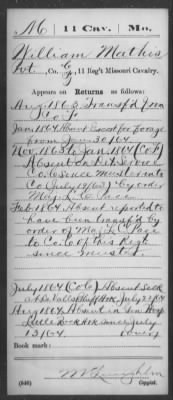 M 11 Cav. Mo.
William Mathis
Pvt, Co. G, 11 Reg't Missouri Cavalry.
Appears on Returns as follows:
Aug 1863 Transf'd from
Co. F
Jany 1864 Absent Escort for forage
from Jan 30/64
Nov. 1863 to Jan 1864 (Co F)
Absent on Det Service
Co G since muster into
Co (July 19/63) by order
Maj. L. C. Pace
Feb 1864 Absent reported to
have been transf'd by
order of Maj L C Pace
to Co. G of this Regt
since muster.
July 1864 (Co G) Absent Sick
July 23/64
Aug 1864 Absent in Gen Hosp
Little Rock Ark since July
13/64
Book mark:
McLaughlin
(546) Copyist.